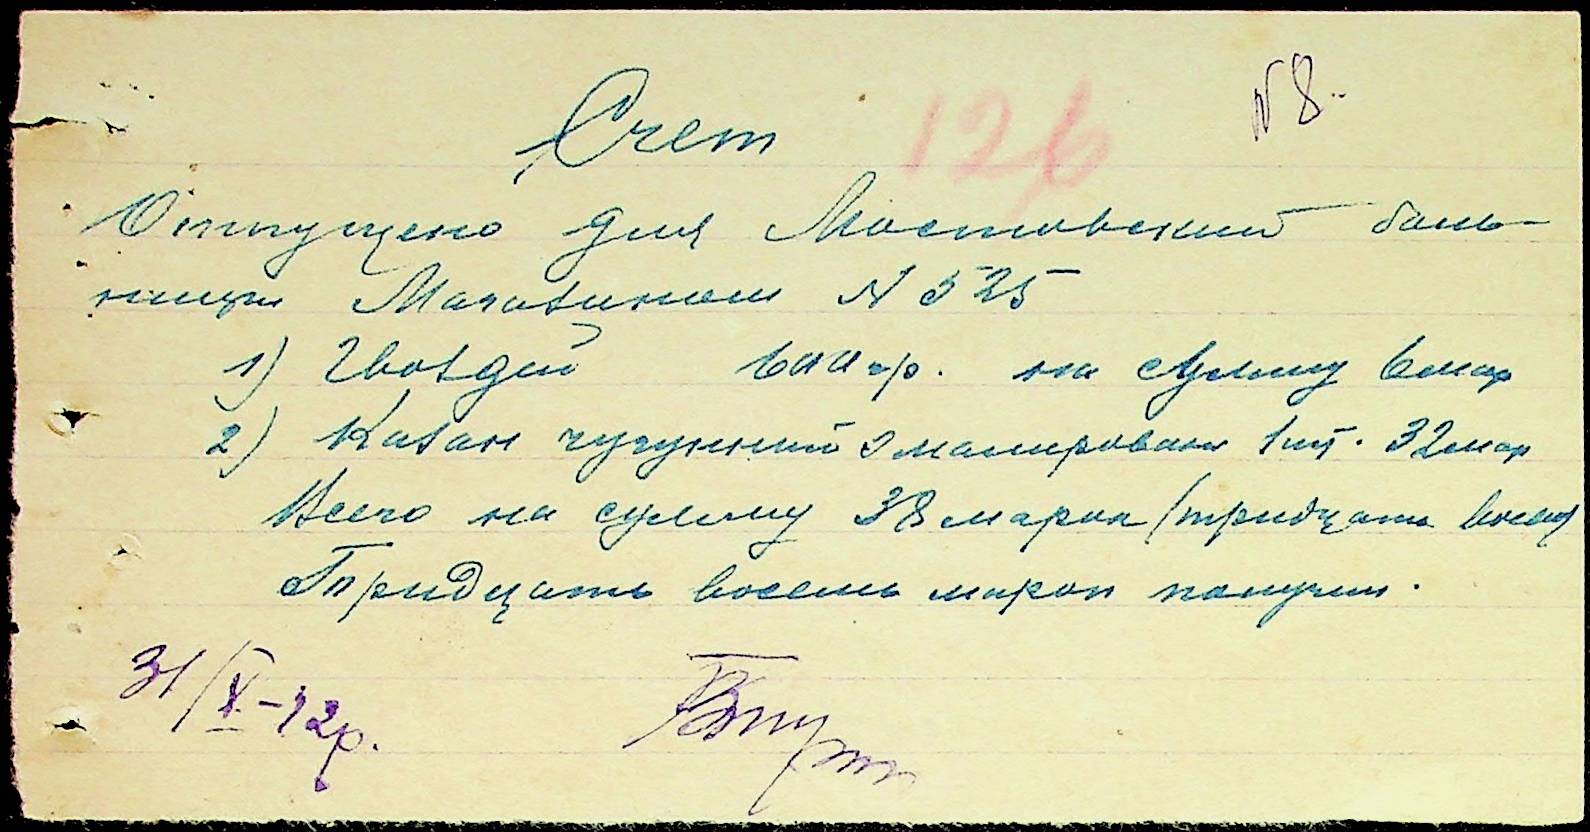 № 8.
126
Счет
Отпущено для Мостовский боль-
ницы Магазином № 525
1) Гвоздей 600 гр. на сумму 6 мар
2) Казан чугунний эмалирован 1 шт. 32 мар
Всего на сумму 38 марок (тридцать восем)
Тридцать восемь марок получил.
31/X-42р.